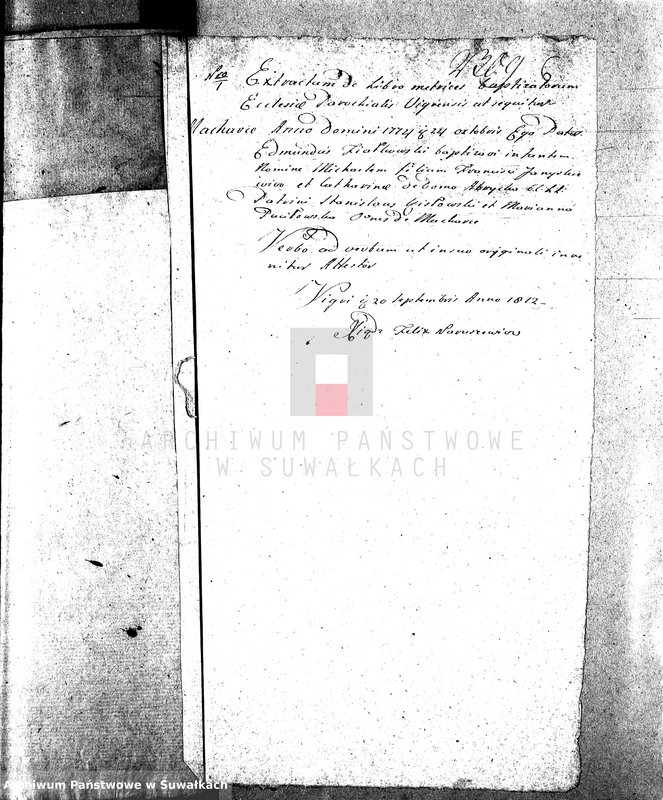 Nro 1
Extractum de Libro metrices Baptizatorum
Ecclesiæ Parochialis Vigrensis ut sequitur
Machavie Anno Domini 1774 24 octobris Ego Pater
Edmundus Fiałkowski baptizavi infantem
Nomine Michaelem filium Francisci
et Catharinæ de Domo
Patrini Stanislaus et Marianna
de Machavie
Verbo ad verbum ut in suo originali inve-
nitur Attestor
Vigri 20 Septembris Anno 1812
Felix Naruszewicz
ARCHIWUM PAŃSTWOWE
W SUWAŁKACH
Archiwum Państwowe w Suwałkach